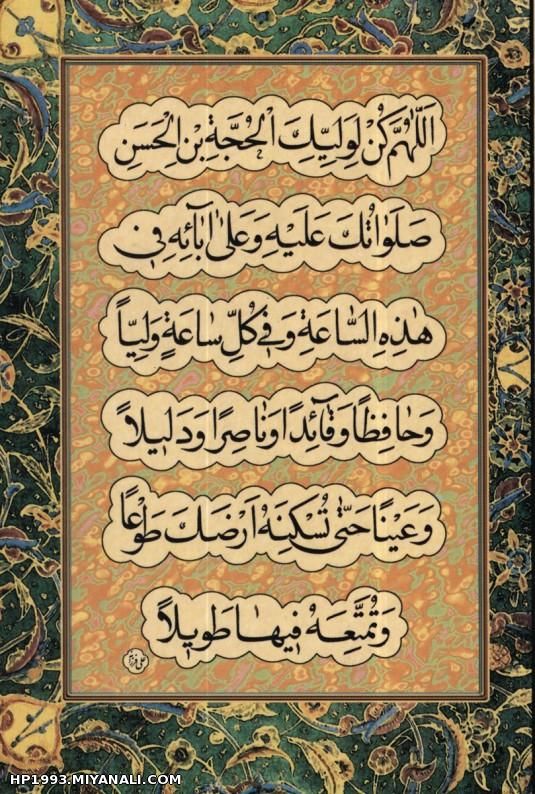 اَللّٰهُمَّ كُنْ لِوَلِيِّكَ الْحُجَّةِ بْنِ الْحَسَنِ
صَلَوٰاتُكَ عَلَيْهِ وَعَلىٰ اٰبٰآئِهِ فِي
هٰذِهِ السّٰاعَةِ وَفي كُلِّ سٰاعَةٍ وَلِيّاً
وَحٰافِظًا وَقٰآئِدًا وَنٰاصِرًا وَدَليلاً
وَعَيْنًا حَتّىٰ تُسْكِنَهُ اَرْضَكَ طَوْعًا
وَتُمَتِّعَهُ فيهٰا طَويلاً
HP1993.MIYANALI.COM